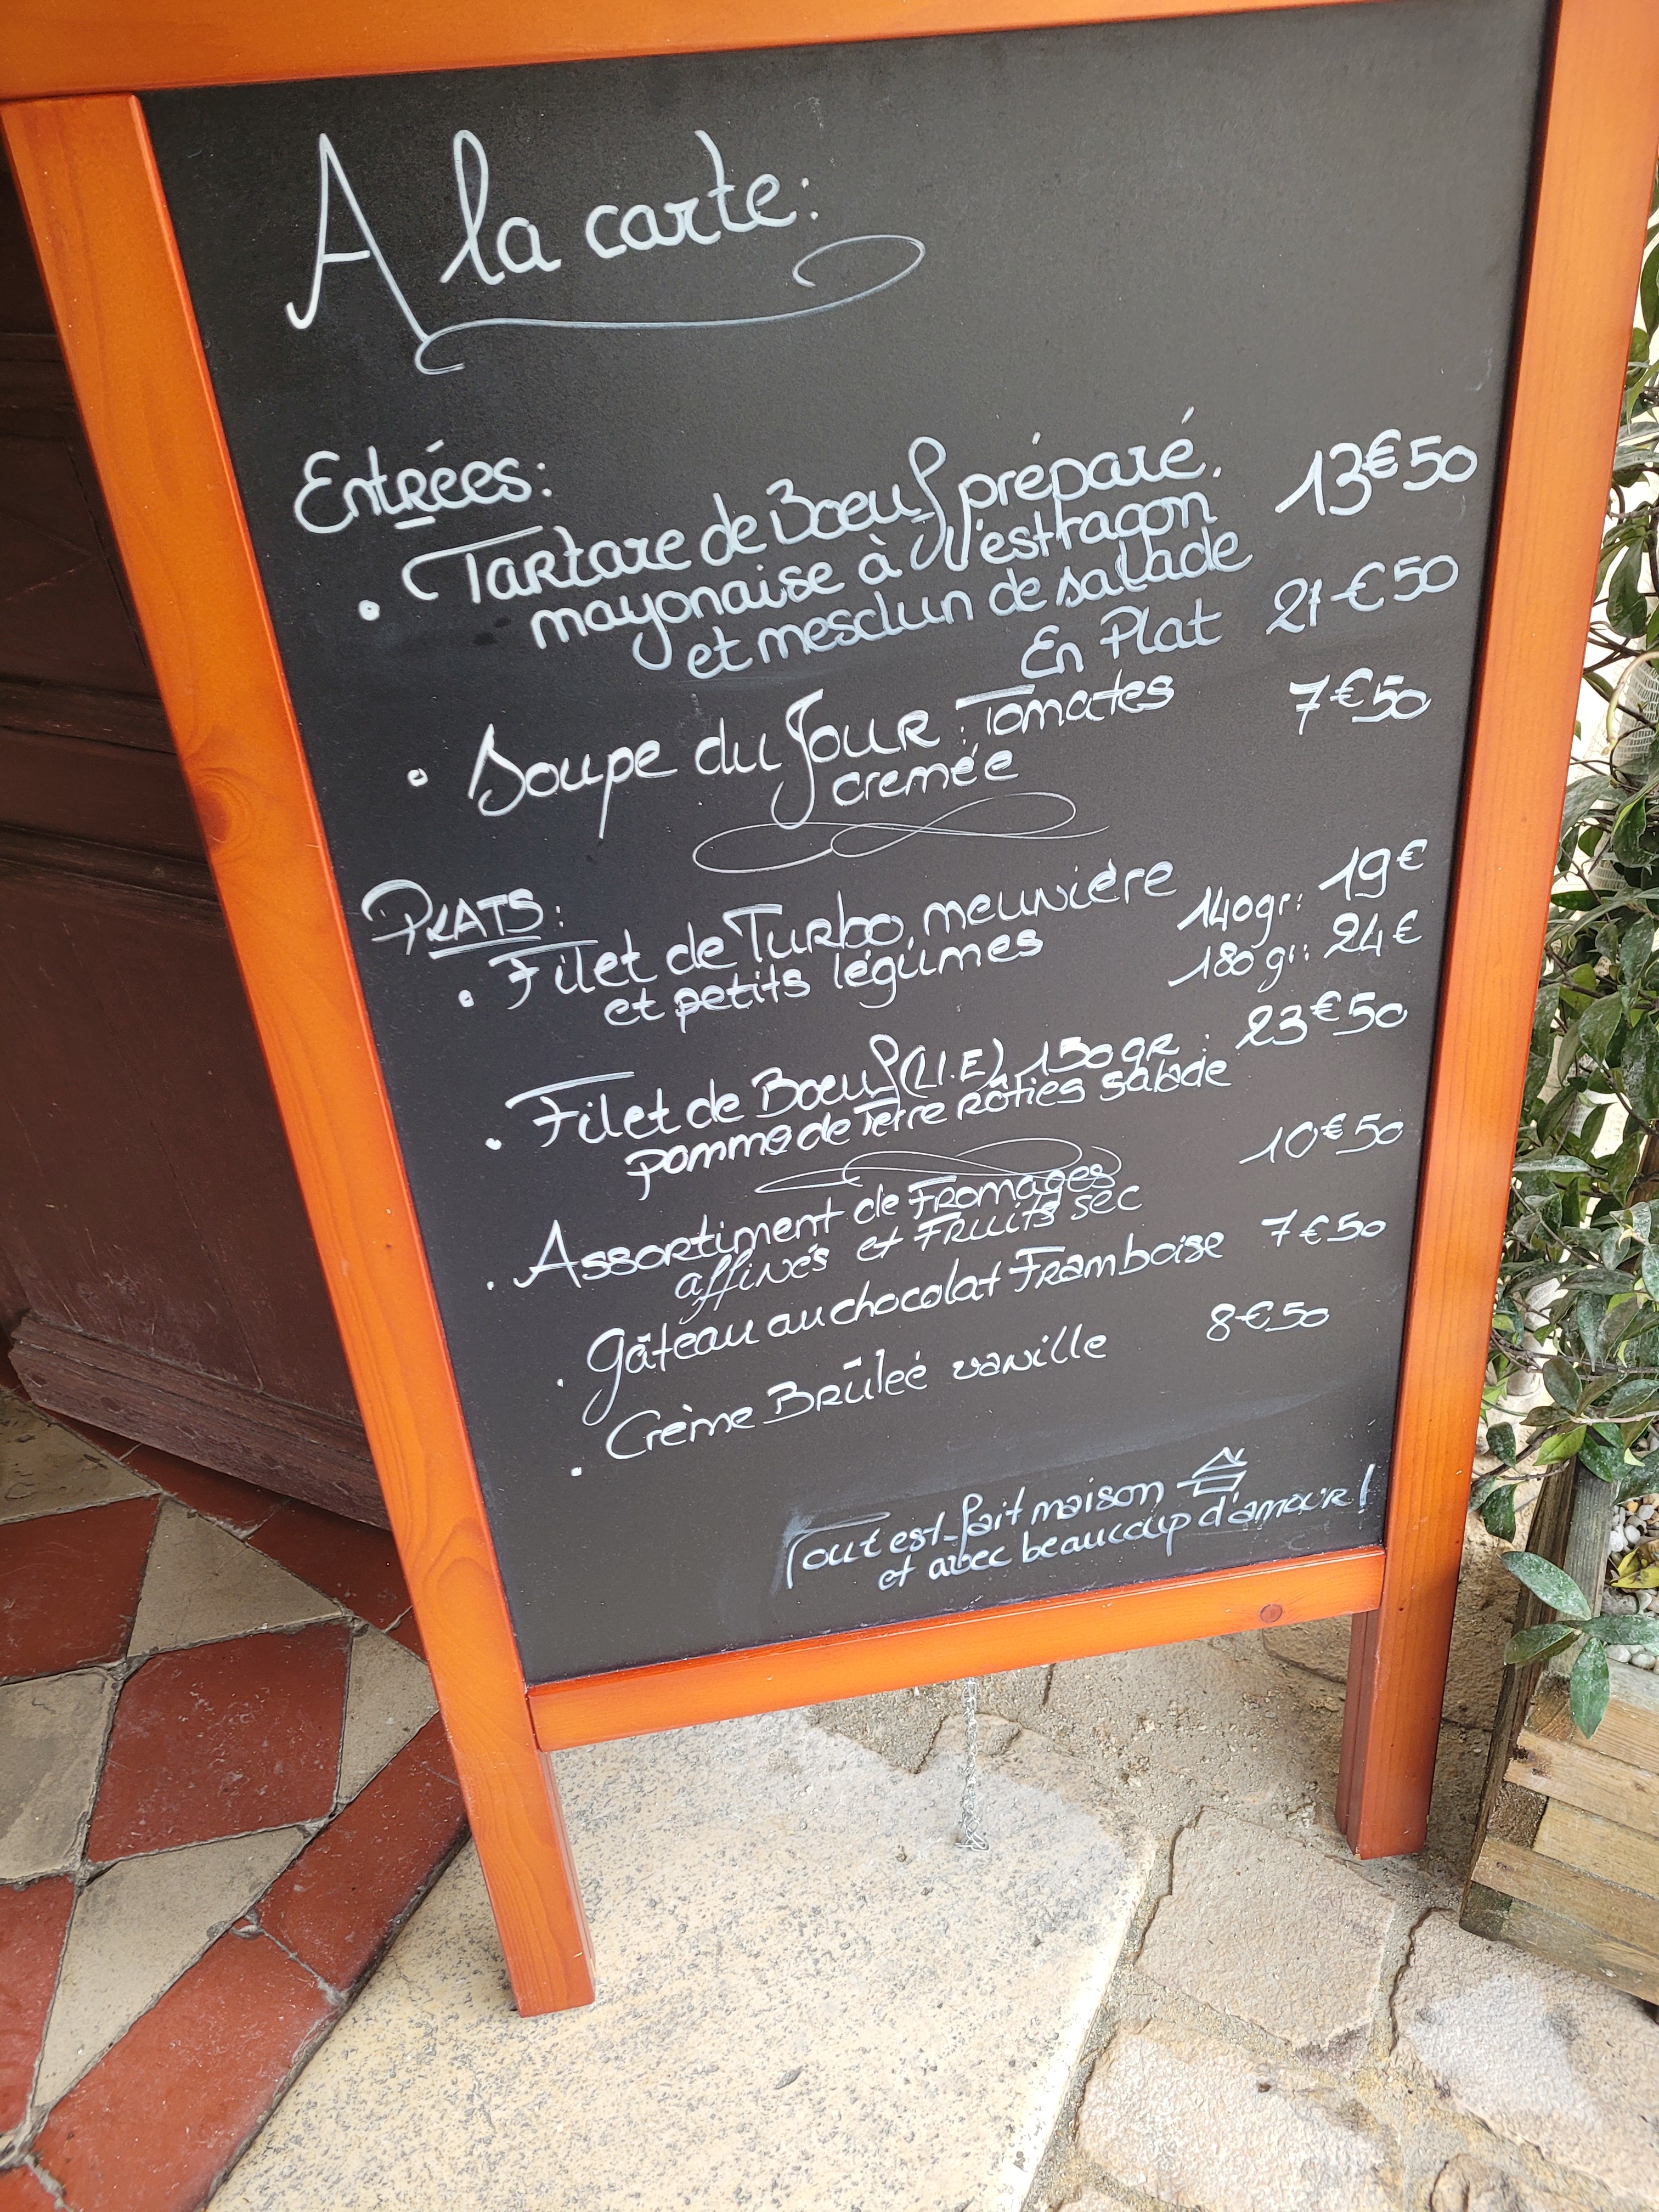 A la carte:
Entrées:
• Tartare de Boeuf préparé. 13€50
mayonaise à l'estragon
et mesclun de salade
En Plat 21€50
• Soupe du Jour: Tomates 7€50
cremée
PLATS:
• Filet de Turbo meunière 140gr: 19€
et petits légumes 180gr: 24€
• Filet de Boeuf (U.E) 150gr: 23€50
pomme de Terre Rôties salade
• Assortiment de Fromages 10€50
affinés et Fruits sec
• Gâteau au chocolat Framboise 7€50
• Crème Brûleé vanille 8€50
Tout est fait maison
et avec beaucoup d'amour!